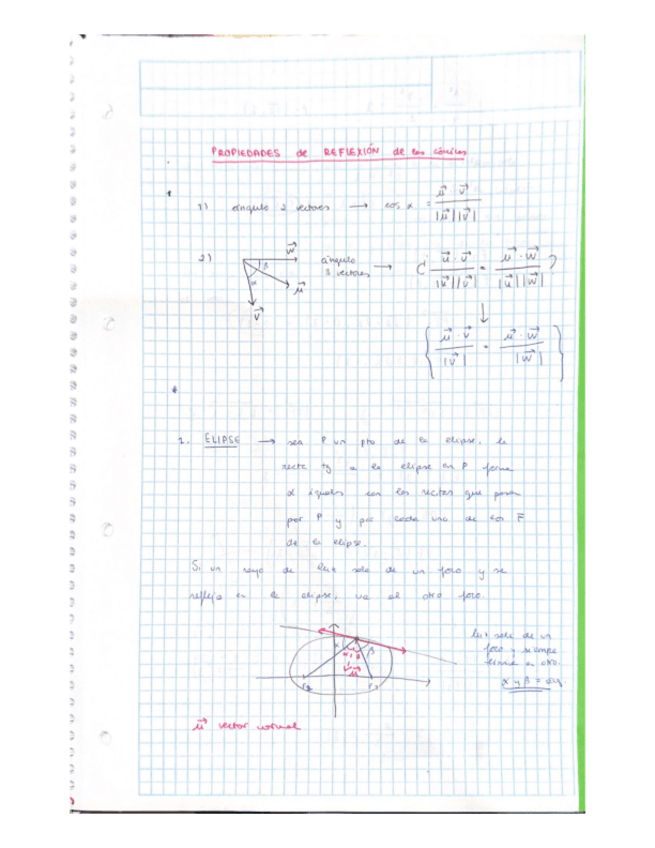 PROPIEDADES de REFLEXIÓN de las cónicas
1) ángulo 2 vectores → cos α = u⃗ · v⃗ / |u⃗||v⃗|
2) w⃗ β α u⃗ v⃗ ángulo 3 vectores → ¿ u⃗ · v⃗ / |u⃗||v⃗| = u⃗ · w⃗ / |u⃗||w⃗| ?
↓
{ u⃗ · v⃗ / |v⃗| = u⃗ · w⃗ / |w⃗| }
1. ELIPSE → sea P un pto de la elipse, la
recta tg a la elipse en P forma
α iguales con las rectas que pasan
por P y por cada uno de los F
de la elipse.
Si un rayo de luz sale de un foco y se
refleja en la elipse, va al otro foco.
luz sale de un
foco y siempre
termina en otro.
α y β =
α β
u⃗
F2 F1
u⃗ vector normal